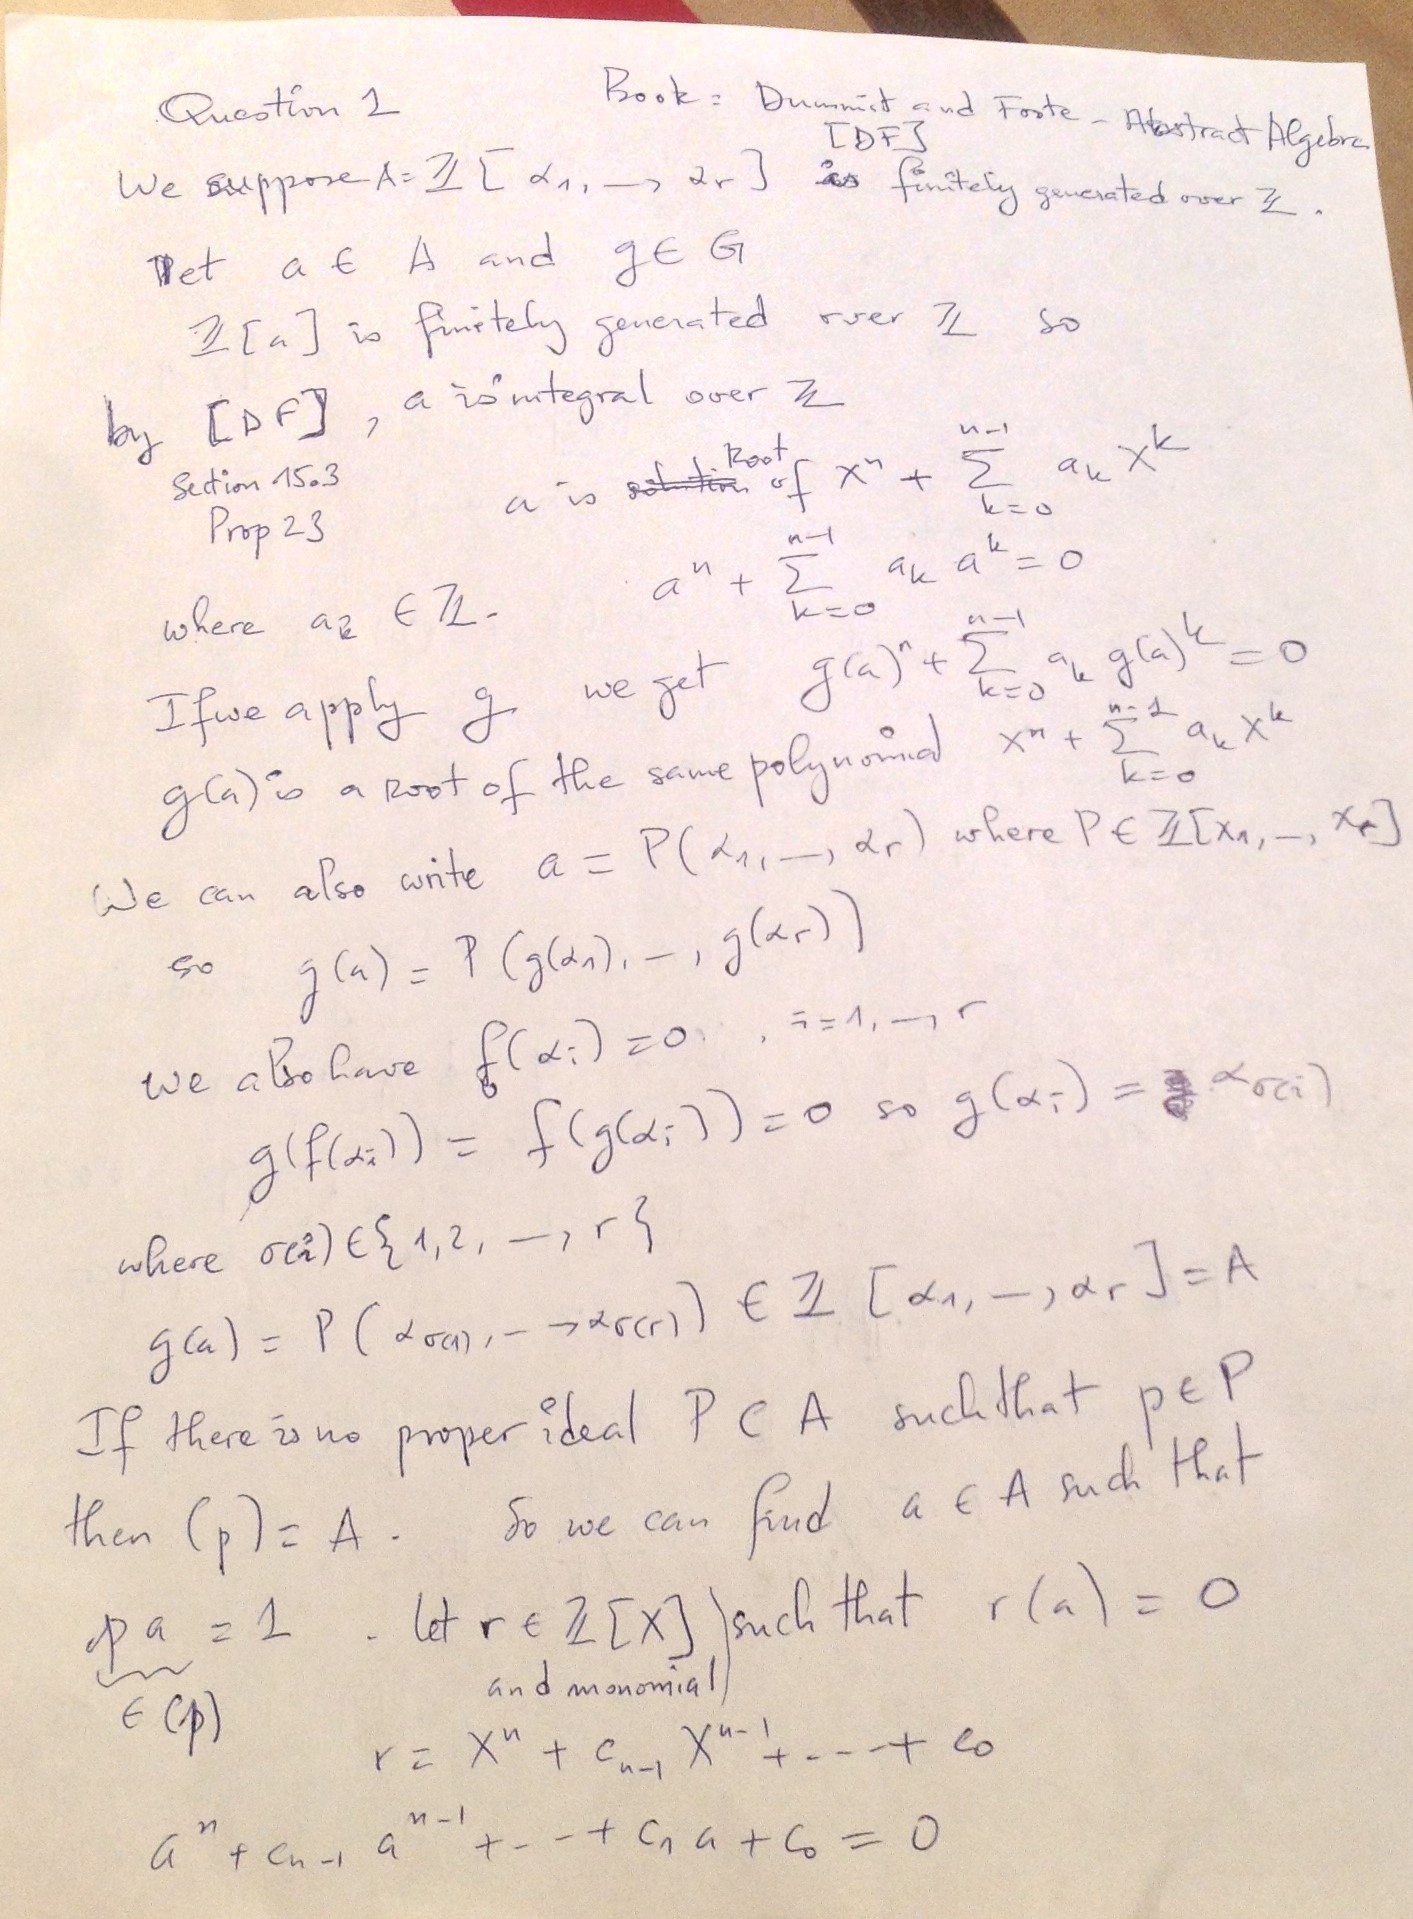 Question 1 Book: Dummit and Foote - Abstract Algebra
[DF]
We suppose A = ℤ[α₁, —, αᵣ] is finitely generated over ℤ.
Let a ∈ A and g ∈ G
ℤ[a] is finitely generated over ℤ so
by [DF], a is integral over ℤ
Section 15.3
Prop 23
a is Root of xⁿ + Σ_{k=0}^{n-1} a_k X^k
aⁿ + Σ_{k=0}^{n-1} a_k a^k = 0
where a_k ∈ ℤ.
If we apply g we get g(a)ⁿ + Σ_{k=0}^{n-1} a_k g(a)^k = 0
g(a) is a root of the same polynomial xⁿ + Σ_{k=0}^{n-1} a_k X^k
We can also write a = P(α₁, —, αᵣ) where P ∈ ℤ[x₁, —, xᵣ]
so g(a) = P(g(α₁), —, g(αᵣ))
we also have f(αᵢ) = 0 , i = 1, —, r
g(f(αᵢ)) = f(g(αᵢ)) = 0 so g(αᵢ) = α_{σ(i)}
where σ(i) ∈ {1, 2, —, r}
g(a) = P(α_{σ(1)}, —, α_{σ(r)}) ∈ ℤ[α₁, —, αᵣ] = A
If there is no proper ideal P ⊂ A such that p ∈ P
then (p) = A. So we can find a ∈ A such that
pa = 1 . let r ∈ ℤ[X] such that r(a) = 0
∈ (p) and monomial
r = Xⁿ + c_{n-1} X^{n-1} + --- + c₀
aⁿ + c_{n-1} a^{n-1} + -- + c₁ a + c₀ = 0